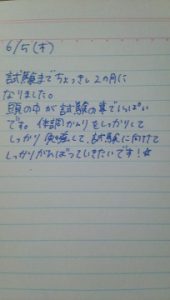 6/5(木)
試験までちょっきし2カ月に
なりました。
頭の中が試験の事でいっぱい
です。体調かんりをしっかりして
しっかり勉強して、試験に向けて
しっかりがんばっていきたいです!☆